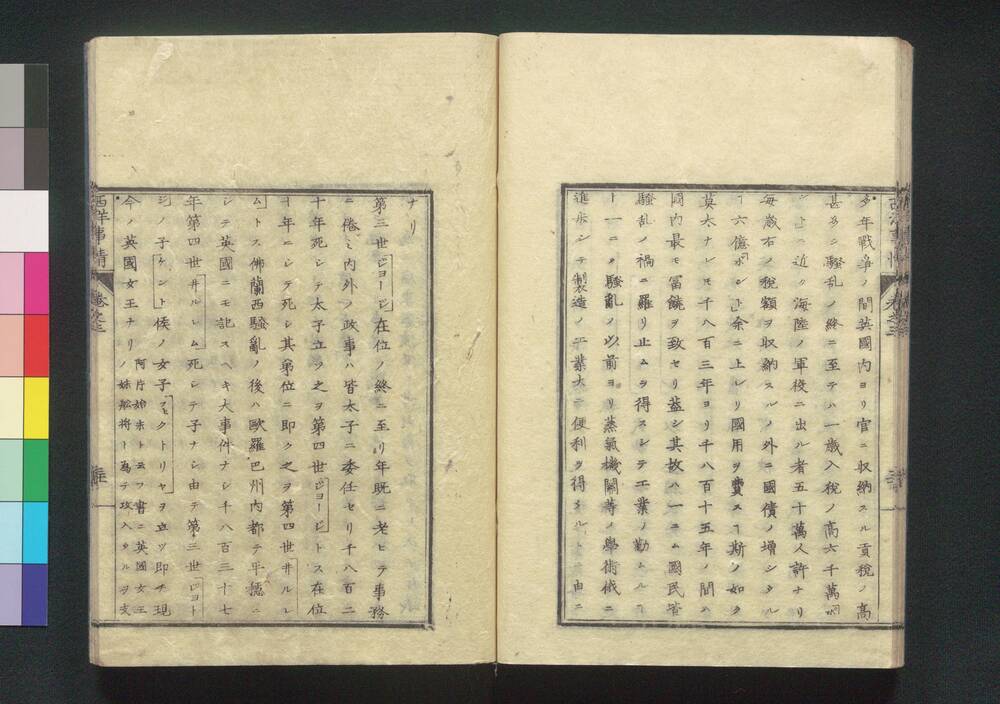 多年戰爭ノ間英國内ヨリ官ニ収納スル貢税ノ高
甚多ニ騒乱ノ終ニ至テハ一歳入税ノ高六千萬
近ク海陸ノ軍役ニ出ル者五十萬人許ナリ
毎歳右ノ税額ヲ収納スルノ外ニ國債ノ増シタル
六億ポンド余ニ上レリ國用ヲ費スヿ斯ノ如ク
莫太ナレモ千八百三年ヨリ千八百十五年ノ間ハ
國内最モ冨饒ヲ致セリ蓋シ其故ハ一ニハ國民皆
騒乱ノ禍ニ罹リ止ムヲ得スシテ工業ノ勤ムル
ト一ニハ騒亂ノ以前ヨリ蒸氣機關等ノ學術俄ニ
進歩シテ製造ノ工業大ニ便利ヲ得タル由ニ
ナリ
第三世ヂヨージ在位ノ終ニ至リ年既ニ老ヒテ事務
ニ倦ミ内外ノ政事ハ皆太子ニ委任セリ千八百二
十年死シテ太子立ツ之ヲ第四世ヂヨージトス在位
十年ニシテ死シ其弟位ニ即ク之ヲ第四世井ルレ
ムトス佛蘭西騒亂ノ後ハ歐羅巴州内都テ平穏ニ
シテ英國ニモ記スヘキ大事件ナシ千八百三十七
年第四世井ルレム死シテ子ナシ由テ第三世ヂヨー
ジノ子ケント侯ノ女子ヴヒクトリヤヲ立ツ即チ現
今ノ英國女王ナリ
阿片始末ト云フ書ニ英國女王
ノ妹船将ト為テ攻入タルヲ支
西洋事情
巻之三